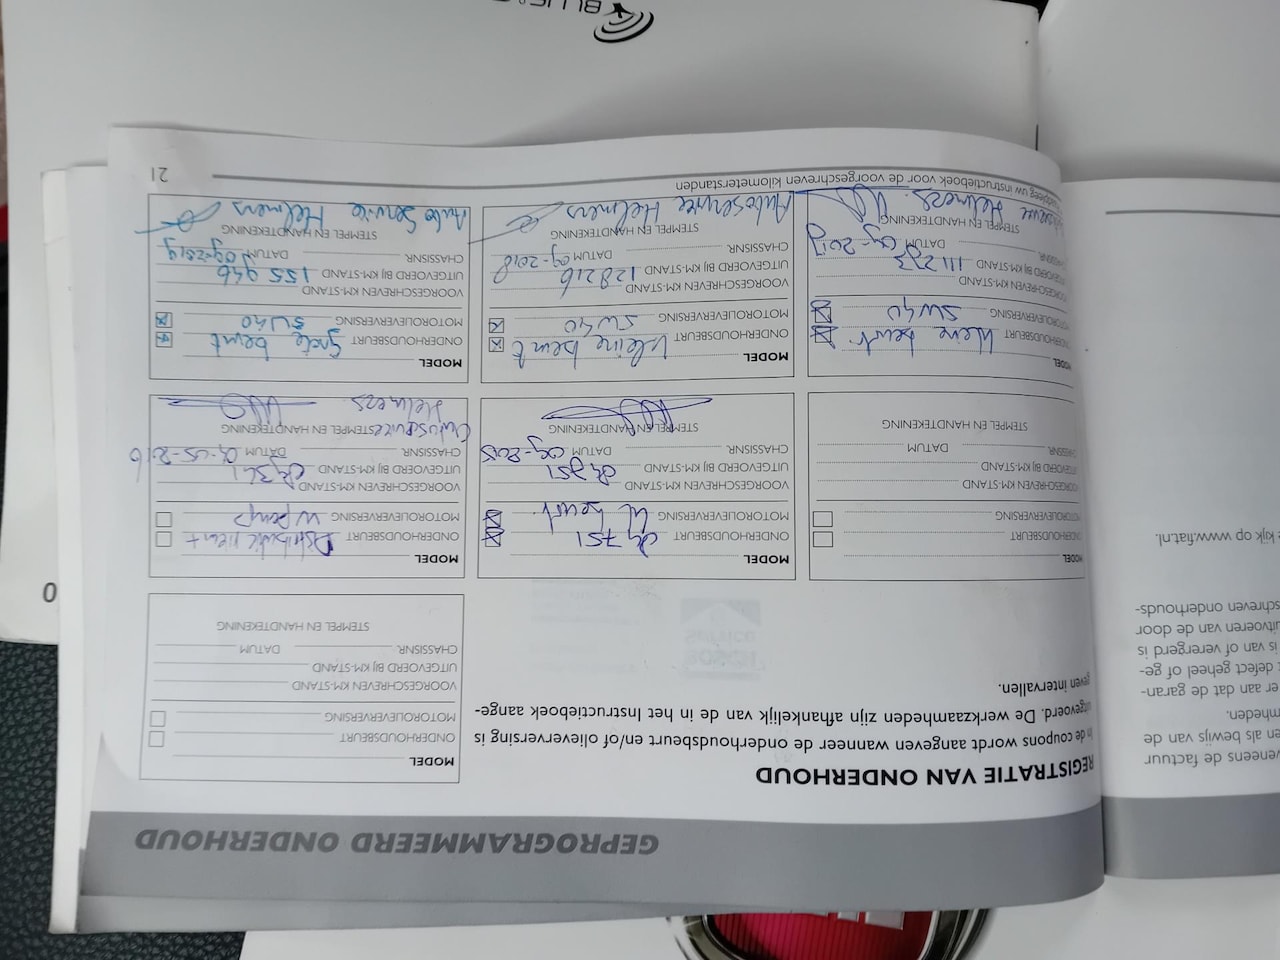 GEPROGRAMMEERD ONDERHOUD
REGISTRATIE VAN ONDERHOUD
In de coupons wordt aangegeven wanneer de onderhoudsbeurt en/of olieverversing is
uitgevoerd. De werkzaamheden zijn afhankelijk van de in het Instructieboek aange-
geven intervallen.
MODEL
ONDERHOUDSBEURT
MOTOROLIEVERVERSING
VOORGESCHREVEN KM-STAND
UITGEVOERD BIJ KM-STAND
CHASSISNR. DATUM
STEMPEL EN HANDTEKENING
ONDERHOUDSBEURT
MOTOROLIEVERVERSING
VOORGESCHREVEN KM-STAND
UITGEVOERD BIJ KM-STAND
CHASSISNR. DATUM
STEMPEL EN HANDTEKENING
MODEL
ONDERHOUDSBEURT
MOTOROLIEVERVERSING beurt
VOORGESCHREVEN KM-STAND
UITGEVOERD BIJ KM-STAND
CHASSISNR. DATUM 09-2015
STEMPEL EN HANDTEKENING
MODEL
ONDERHOUDSBEURT Distributie riem +
MOTOROLIEVERVERSING w pomp
VOORGESCHREVEN KM-STAND
UITGEVOERD BIJ KM-STAND
CHASSISNR. DATUM
STEMPEL EN HANDTEKENING
Autoservice
Helmers
MODEL
ONDERHOUDSBEURT kleine beurt
MOTOROLIEVERVERSING 5W40
VOORGESCHREVEN KM-STAND
UITGEVOERD BIJ KM-STAND 111273
CHASSISNR. DATUM 09-2017
STEMPEL EN HANDTEKENING
Helmers
MODEL
ONDERHOUDSBEURT kleine beurt
MOTOROLIEVERVERSING 5W40
VOORGESCHREVEN KM-STAND
UITGEVOERD BIJ KM-STAND 128216
CHASSISNR. DATUM 09-2018
STEMPEL EN HANDTEKENING
Autoservice Helmers
MODEL
ONDERHOUDSBEURT Grote beurt
MOTOROLIEVERVERSING 5W40
VOORGESCHREVEN KM-STAND
UITGEVOERD BIJ KM-STAND 155946
CHASSISNR. DATUM 09-2019
STEMPEL EN HANDTEKENING
Auto Service Helmers
Raadpleeg uw instructieboek voor de voorgeschreven kilometerstanden
21
veneens de factuur
en als bewijs van de
mheden.
er aan dat de garan-
t defect geheel of ge-
is van of verergerd is
uitvoeren van de door
schreven onderhouds-
kijk op www.fiat.nl.